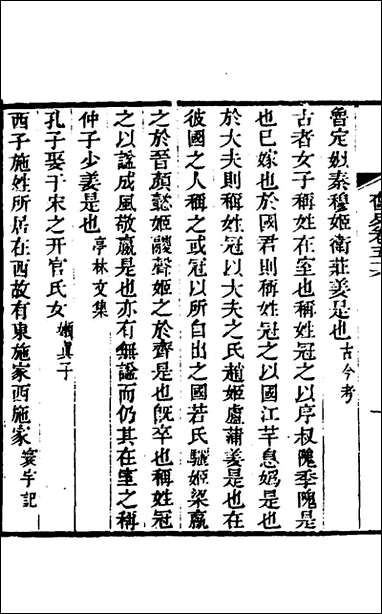 魯定姒秦穆姬衛莊姜是也古今考
古者女子稱姓在室也稱姓冠之以序叔隗季隗是
也已嫁也於國君則稱姓冠之以國江芊息嬀是也
於大夫則稱姓冠以大夫之氏趙姬盧蒲姜是也在
彼國之人稱之或冠以所自出之國若氏驪姬梁嬴
之於晉顏懿姬鬷聲姬之於齊是也旣卒也稱姓冠
之以諡成風敬嬴是也亦有無諡而仍其在室之稱
仲子少姜是也亭林文集
孔子娶于宋之开官氏女嬾眞子
西子施姓所居在西故有東施家西施家寰宇記